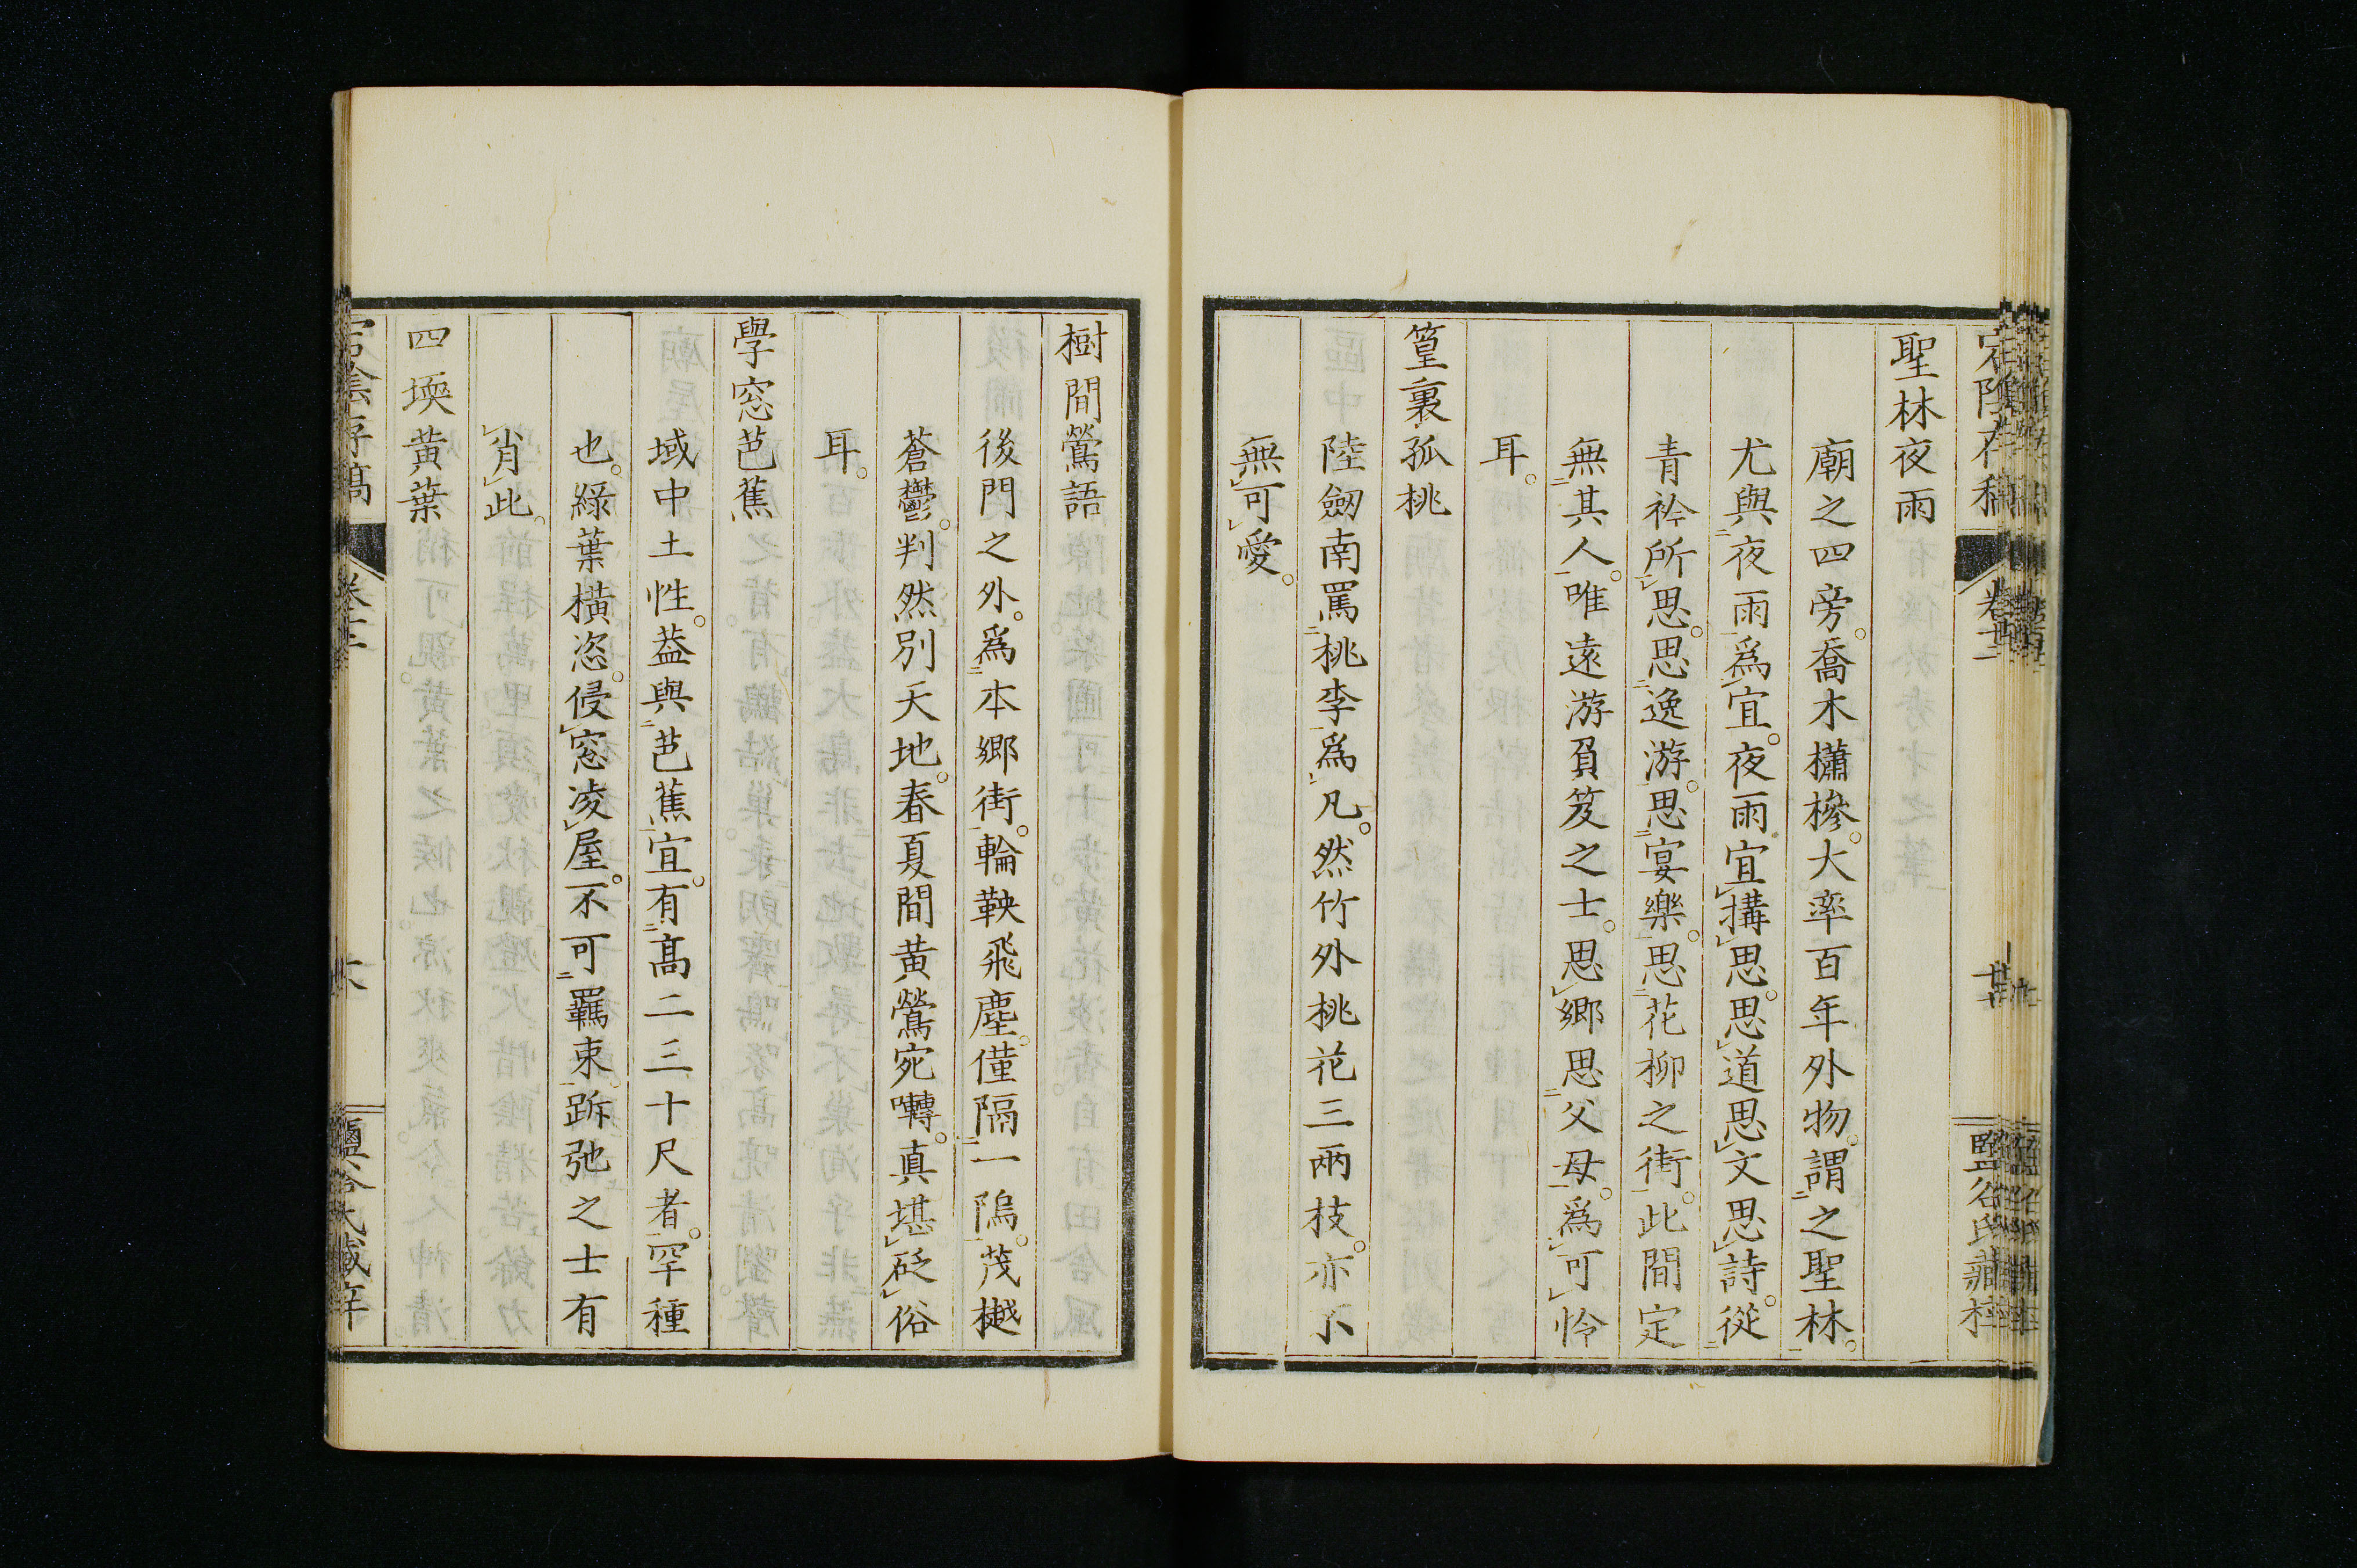 聖林夜雨
廟之四旁。喬木橚槮。大率百年外物。謂之聖林。
尤與夜雨爲宜。夜雨宜搆思。思道思文思詩。從
青衿所思。思逸游。思宴樂。思花柳之街。此間定
無其人。唯遠游負笈之士。思鄉思父母。爲可怜
耳。
篁裏孤桃
陸劔南罵桃李爲凡。然竹外桃花三兩枝。亦不
無可愛。
樹間鶯語
後門之外。爲本鄉街。輪鞅飛塵。僅隔一隖。茂樾
蒼鬱。判然別天地。春夏間黃鶯宛囀。真堪砭俗
耳。
學窓芭蕉
域中土性。葢與芭蕉宜。有高二三十尺者。罕種
也。綠葉橫恣。侵窓凌屋。不可羈束。跅弛之士有
肖此。
四堧黃葉